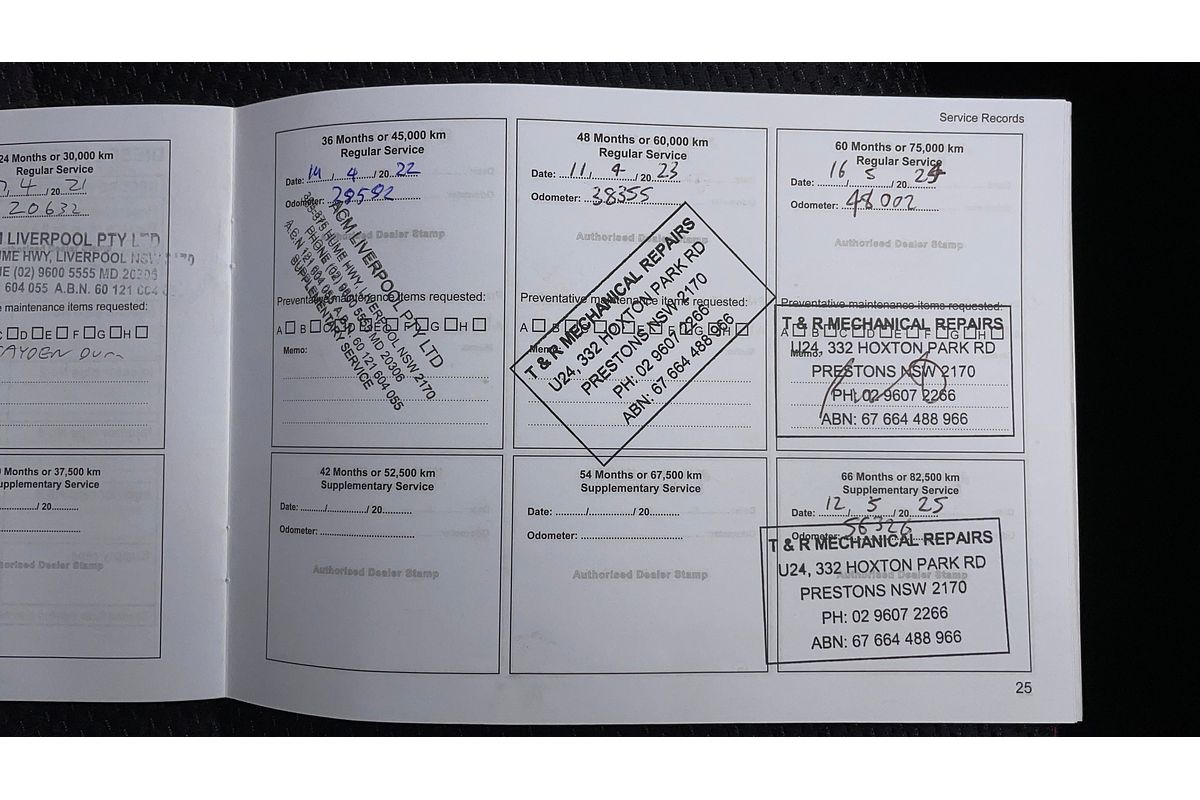 Service Records
24 Months or 30,000 km
Regular Service
4 / 20 21
20632
LIVERPOOL PTY LTD
UME HWY, LIVERPOOL NSW
NE (02) 9600 5555 MD 20306
604 055 A.B.N. 60 121 604
maintenance items requested:
C D E F G H
37,500 km
Supplementary Service
/ 20
Authorised Dealer Stamp
36 Months or 45,000 km
Regular Service
Date: 14 / 4 / 20 22
Odometer: 28592
Authorised Dealer Stamp
ACM LIVERPOOL PTY LTD
HUME HWY, LIVERPOOL NSW 2170
PHONE (02) 9600 5555 MD 20306
A.C.N 121 604 055 A.B.N. 60 121 604 055
SUPPLEMENTARY SERVICE
Preventative maintenance items requested:
A B C D E F G H
Memo:
48 Months or 60,000 km
Regular Service
Date: 11 / 4 / 20 23
Odometer: 38355
Authorised Dealer Stamp
Preventative maintenance items requested:
A B C D E F G H
Memo:
T & R MECHANICAL REPAIRS
U24, 332 HOXTON PARK RD
PRESTONS NSW 2170
PH: 02 9607 2266
ABN: 67 664 488 966
60 Months or 75,000 km
Regular Service
Date: 16 / 5 / 20 24
Odometer: 48002
Authorised Dealer Stamp
Preventative maintenance items requested:
A B C D E F G H
Memo:
T & R MECHANICAL REPAIRS
U24, 332 HOXTON PARK RD
PRESTONS NSW 2170
PH: 02 9607 2266
ABN: 67 664 488 966
42 Months or 52,500 km
Supplementary Service
Date: / / 20
Odometer:
Authorised Dealer Stamp
54 Months or 67,500 km
Supplementary Service
Date: / / 20
Odometer:
Authorised Dealer Stamp
66 Months or 82,500 km
Supplementary Service
Date: 12 / 5 / 20 25
Odometer: 56326
Authorised Dealer Stamp
T & R MECHANICAL REPAIRS
U24, 332 HOXTON PARK RD
PRESTONS NSW 2170
PH: 02 9607 2266
ABN: 67 664 488 966
25